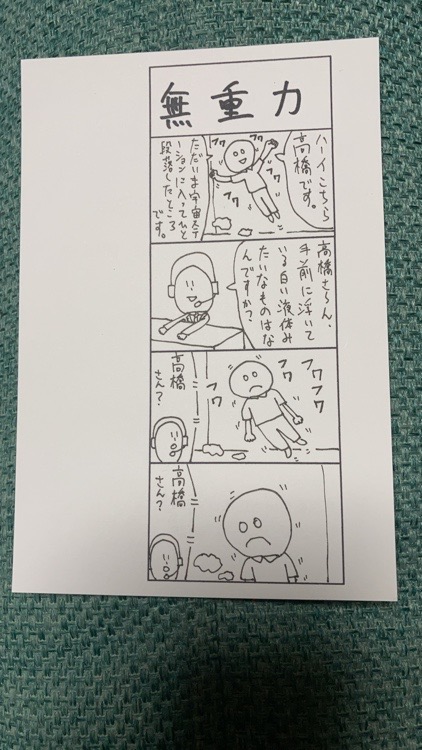 無重力
ハーイこちら
高橋です。
ただいま宇宙ステ
ーションに入ってひと
段落したところ
です。
フワ
フワ
フワ
フワ
フワ
高橋さーん、
手前に浮いて
いる白い液体み
たいなものはな
んですか?
フワフワ
フワ
フワ
高橋
さん?
高橋
さん?